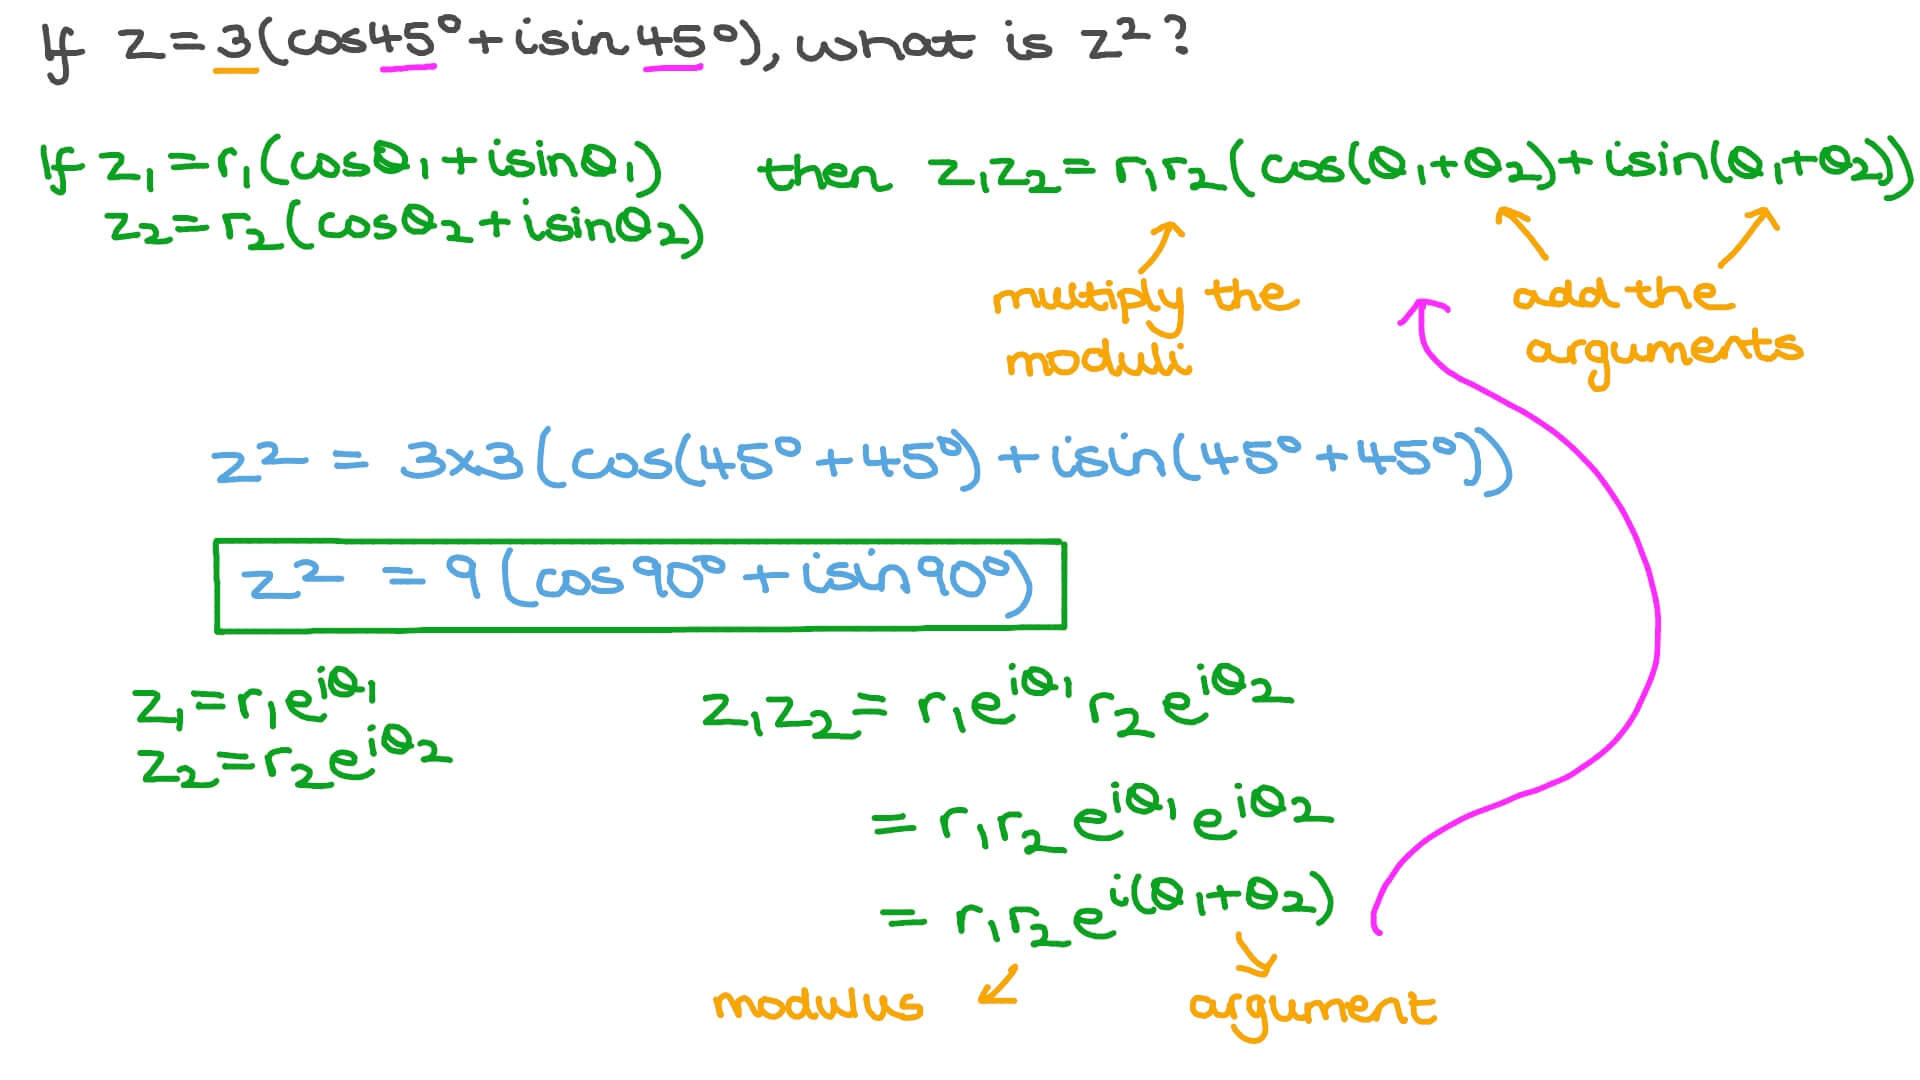 If z = 3(cos45° + isin45°), what is z²?
If z₁ = r₁(cosθ₁ + isinθ₁) then z₁z₂ = r₁r₂(cos(θ₁+θ₂) + isin(θ₁+θ₂))
z₂ = r₂(cosθ₂ + isinθ₂)
multiply the
moduli
add the
arguments
z² = 3×3(cos(45° + 45°) + isin(45° + 45°))
z² = 9(cos90° + isin90°)
z₁ = r₁e^{iθ₁}
z₂ = r₂e^{iθ₂}
z₁z₂ = r₁e^{iθ₁} r₂e^{iθ₂}
= r₁r₂ e^{iθ₁} e^{iθ₂}
= r₁r₂ e^{i(θ₁+θ₂)}
modulus argument